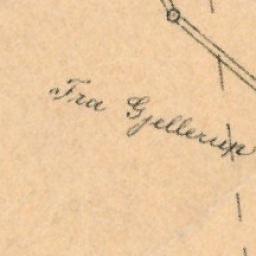 Fra Gjellerup